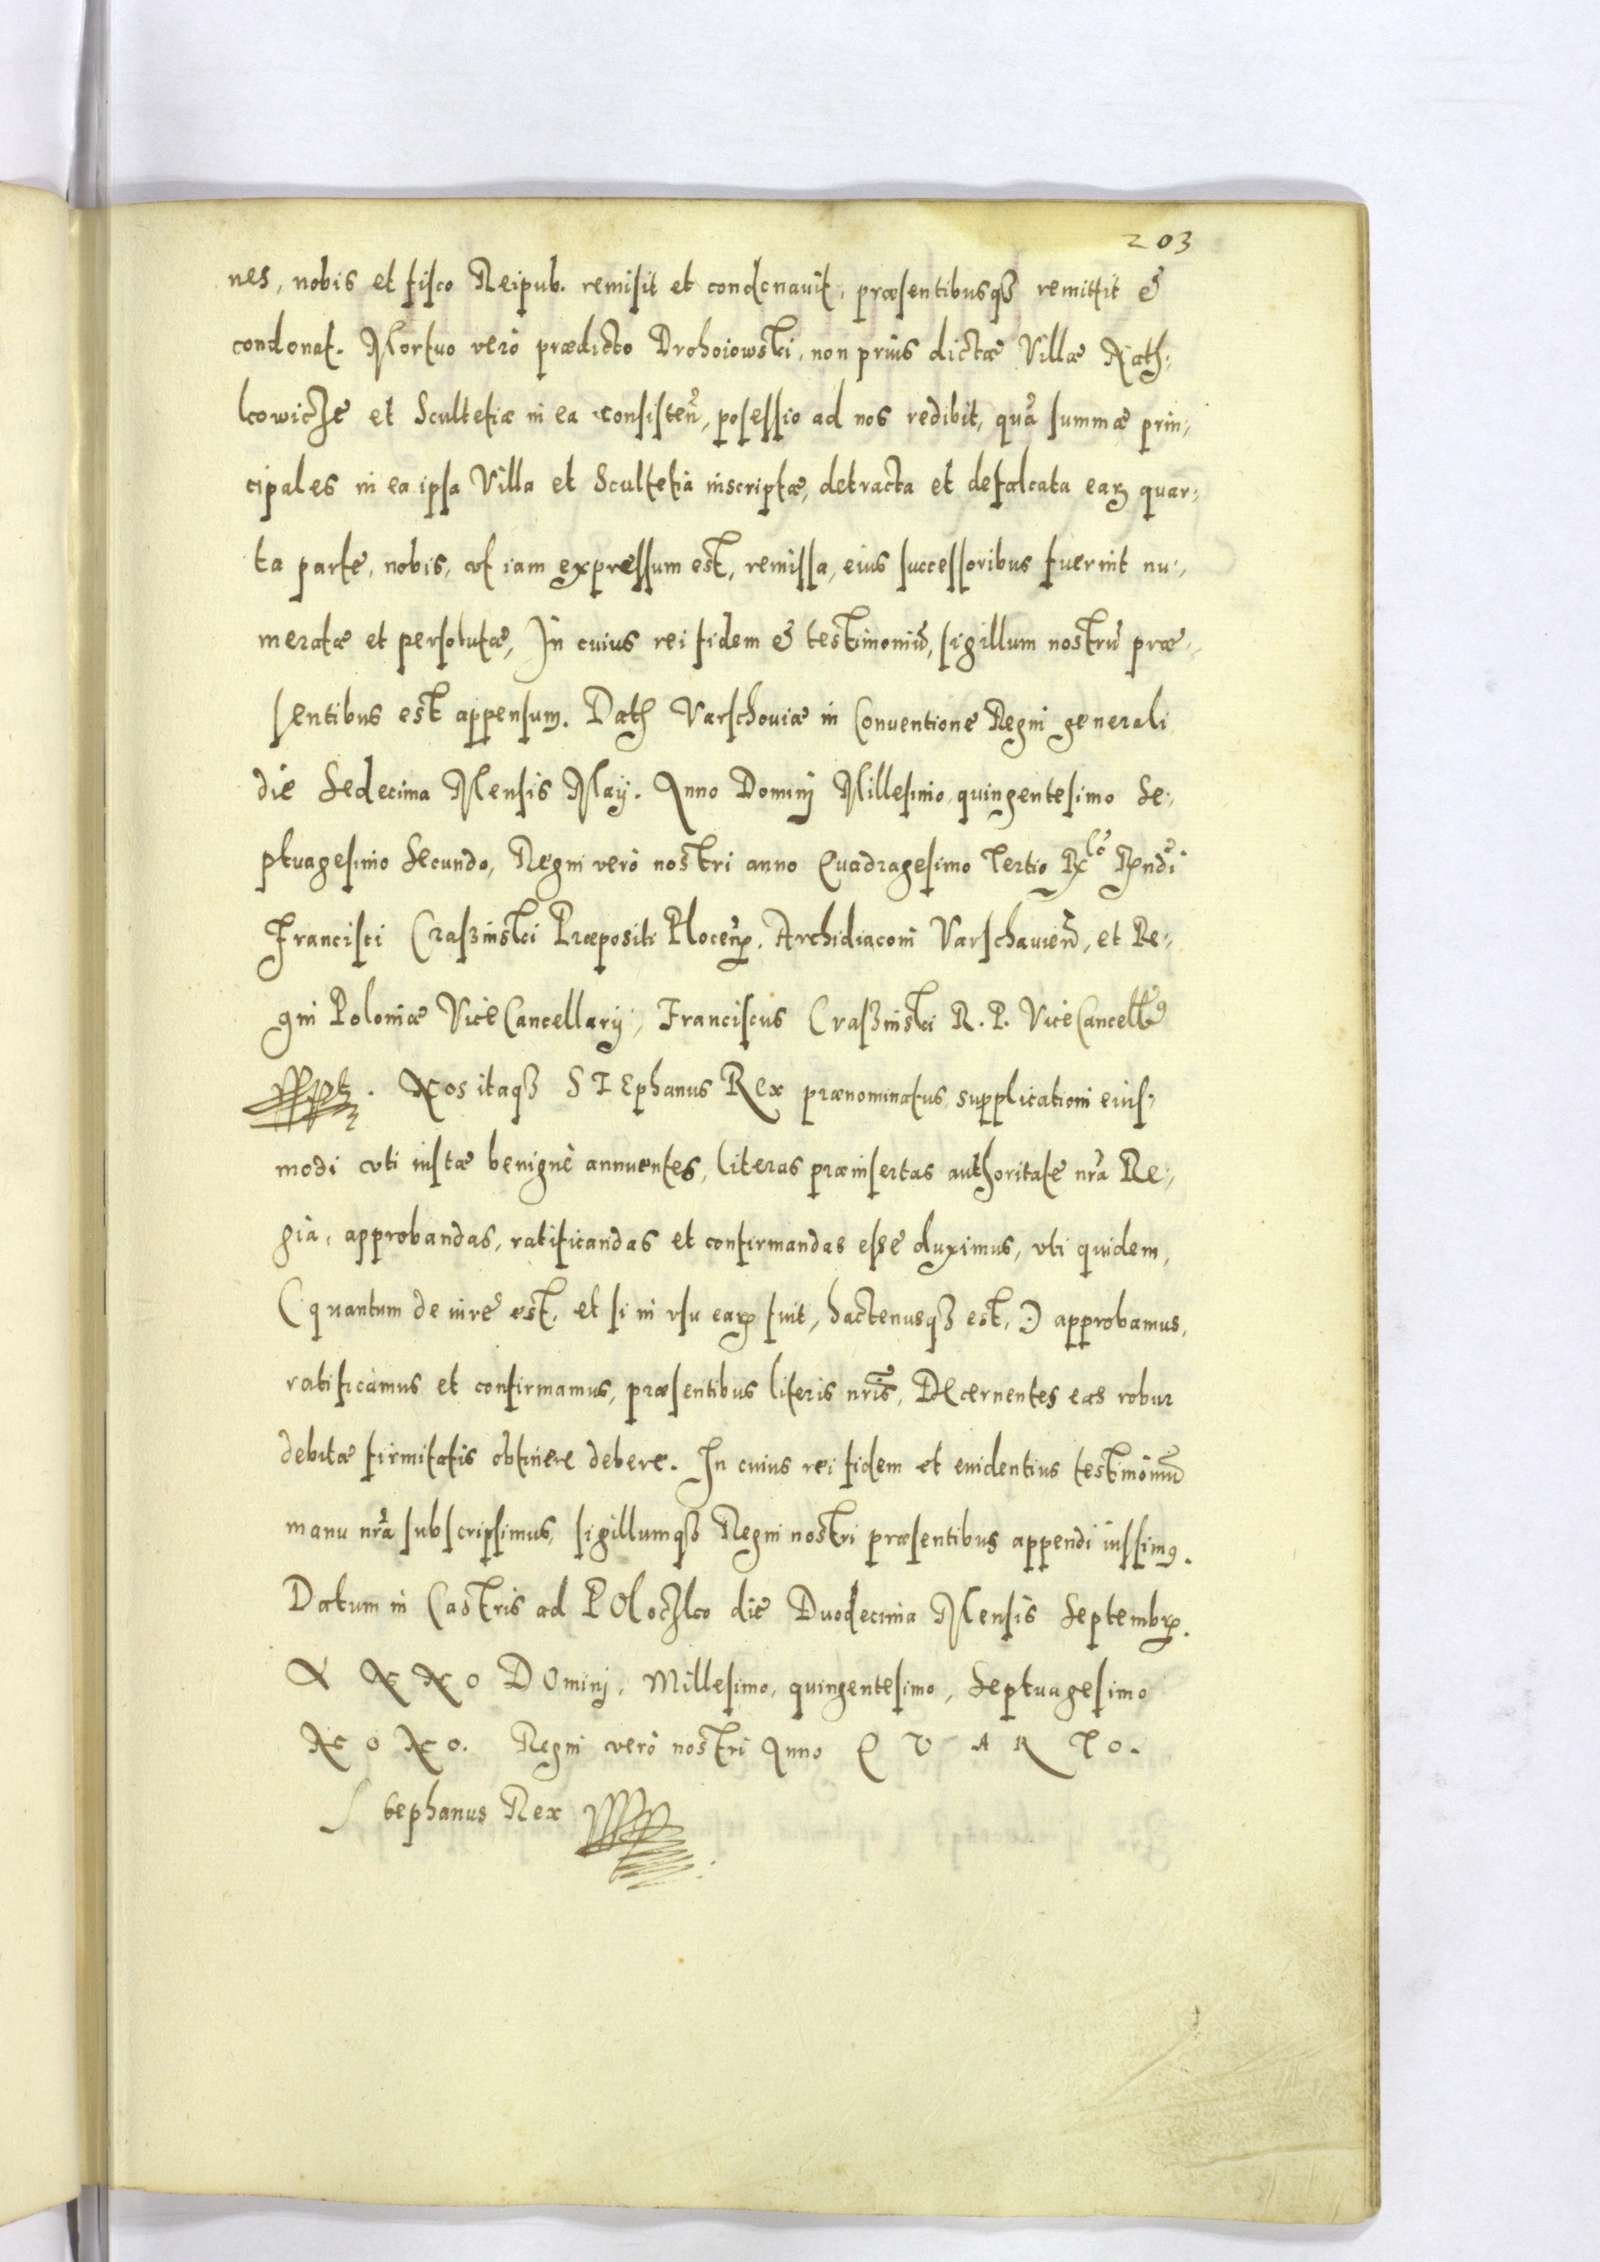 203
nes, nobis et fisco Reipub. remisit et condonauit, præsentibusqꝫ remittit &
condonat. Mortuo verò prædicto Drohoiowski, non prius dictæ Villæ Nath:
kowicze et Scultetiæ in ea consisteñ, posessio ad nos redibit, quã summæ prin:
cipales in ea ipsa Villa et Scultetia inscriptæ, detracta et defalcata eaꝝ quar:
ta parte, nobis, vt iam expressum est, remissa, eius successoribus fuerint nu:
meratæ et persolutæ, In cuius rei fidem & testimoniũ, sigillum nostrũ præ:
sentibus est appensum. Datꝭ Varschouiæ in Conuentione Regni generali
die Sedecima Mensis Maij. Anno Dominj Millesimo quingentesimo Se:
ptuagesimo Secundo, Regni verò nostri anno Quadragesimo Tertio Rˡᵒ Rndi
Francisci Craßinski Præpositi Plocen̄. Archidiaconi Varschauien̄, et Re:
gni Poloniæ ViceCancellarij, Franciscus Craßinski R. P. ViceCancell9
Nos itaqꝫ STEphanus Rex prænominatus supplicationi eius:
modi vti iustæ benignè annuentes, literas præinsertas authoritate nrã Re:
gia, approbandas, ratificandas et confirmandas esse duximus, vti quidem,
(quantum de iure est, et si in vsu eaꝝ fuit, hactenusqꝫ est,) approbamus,
ratificamus et confirmamus, præsentibus literis nris̃, DEcernentes eas robur
debitæ firmitatis obtinere debere. In cuius rei fidem et euidentius testimoniũ
manu nrã subscripsimus, sigillumqꝫ Regni nostri præsentibus appendi iussimꝰ.
Datum in Castris ad POloczko die Duodecima Mensis Septembꝝ.
A N N O DOminj, Millesimo, quingentesimo, Septuagesimo
N O N O. Regni verò nostri Anno Q V A R T O.
Stephanus Rex